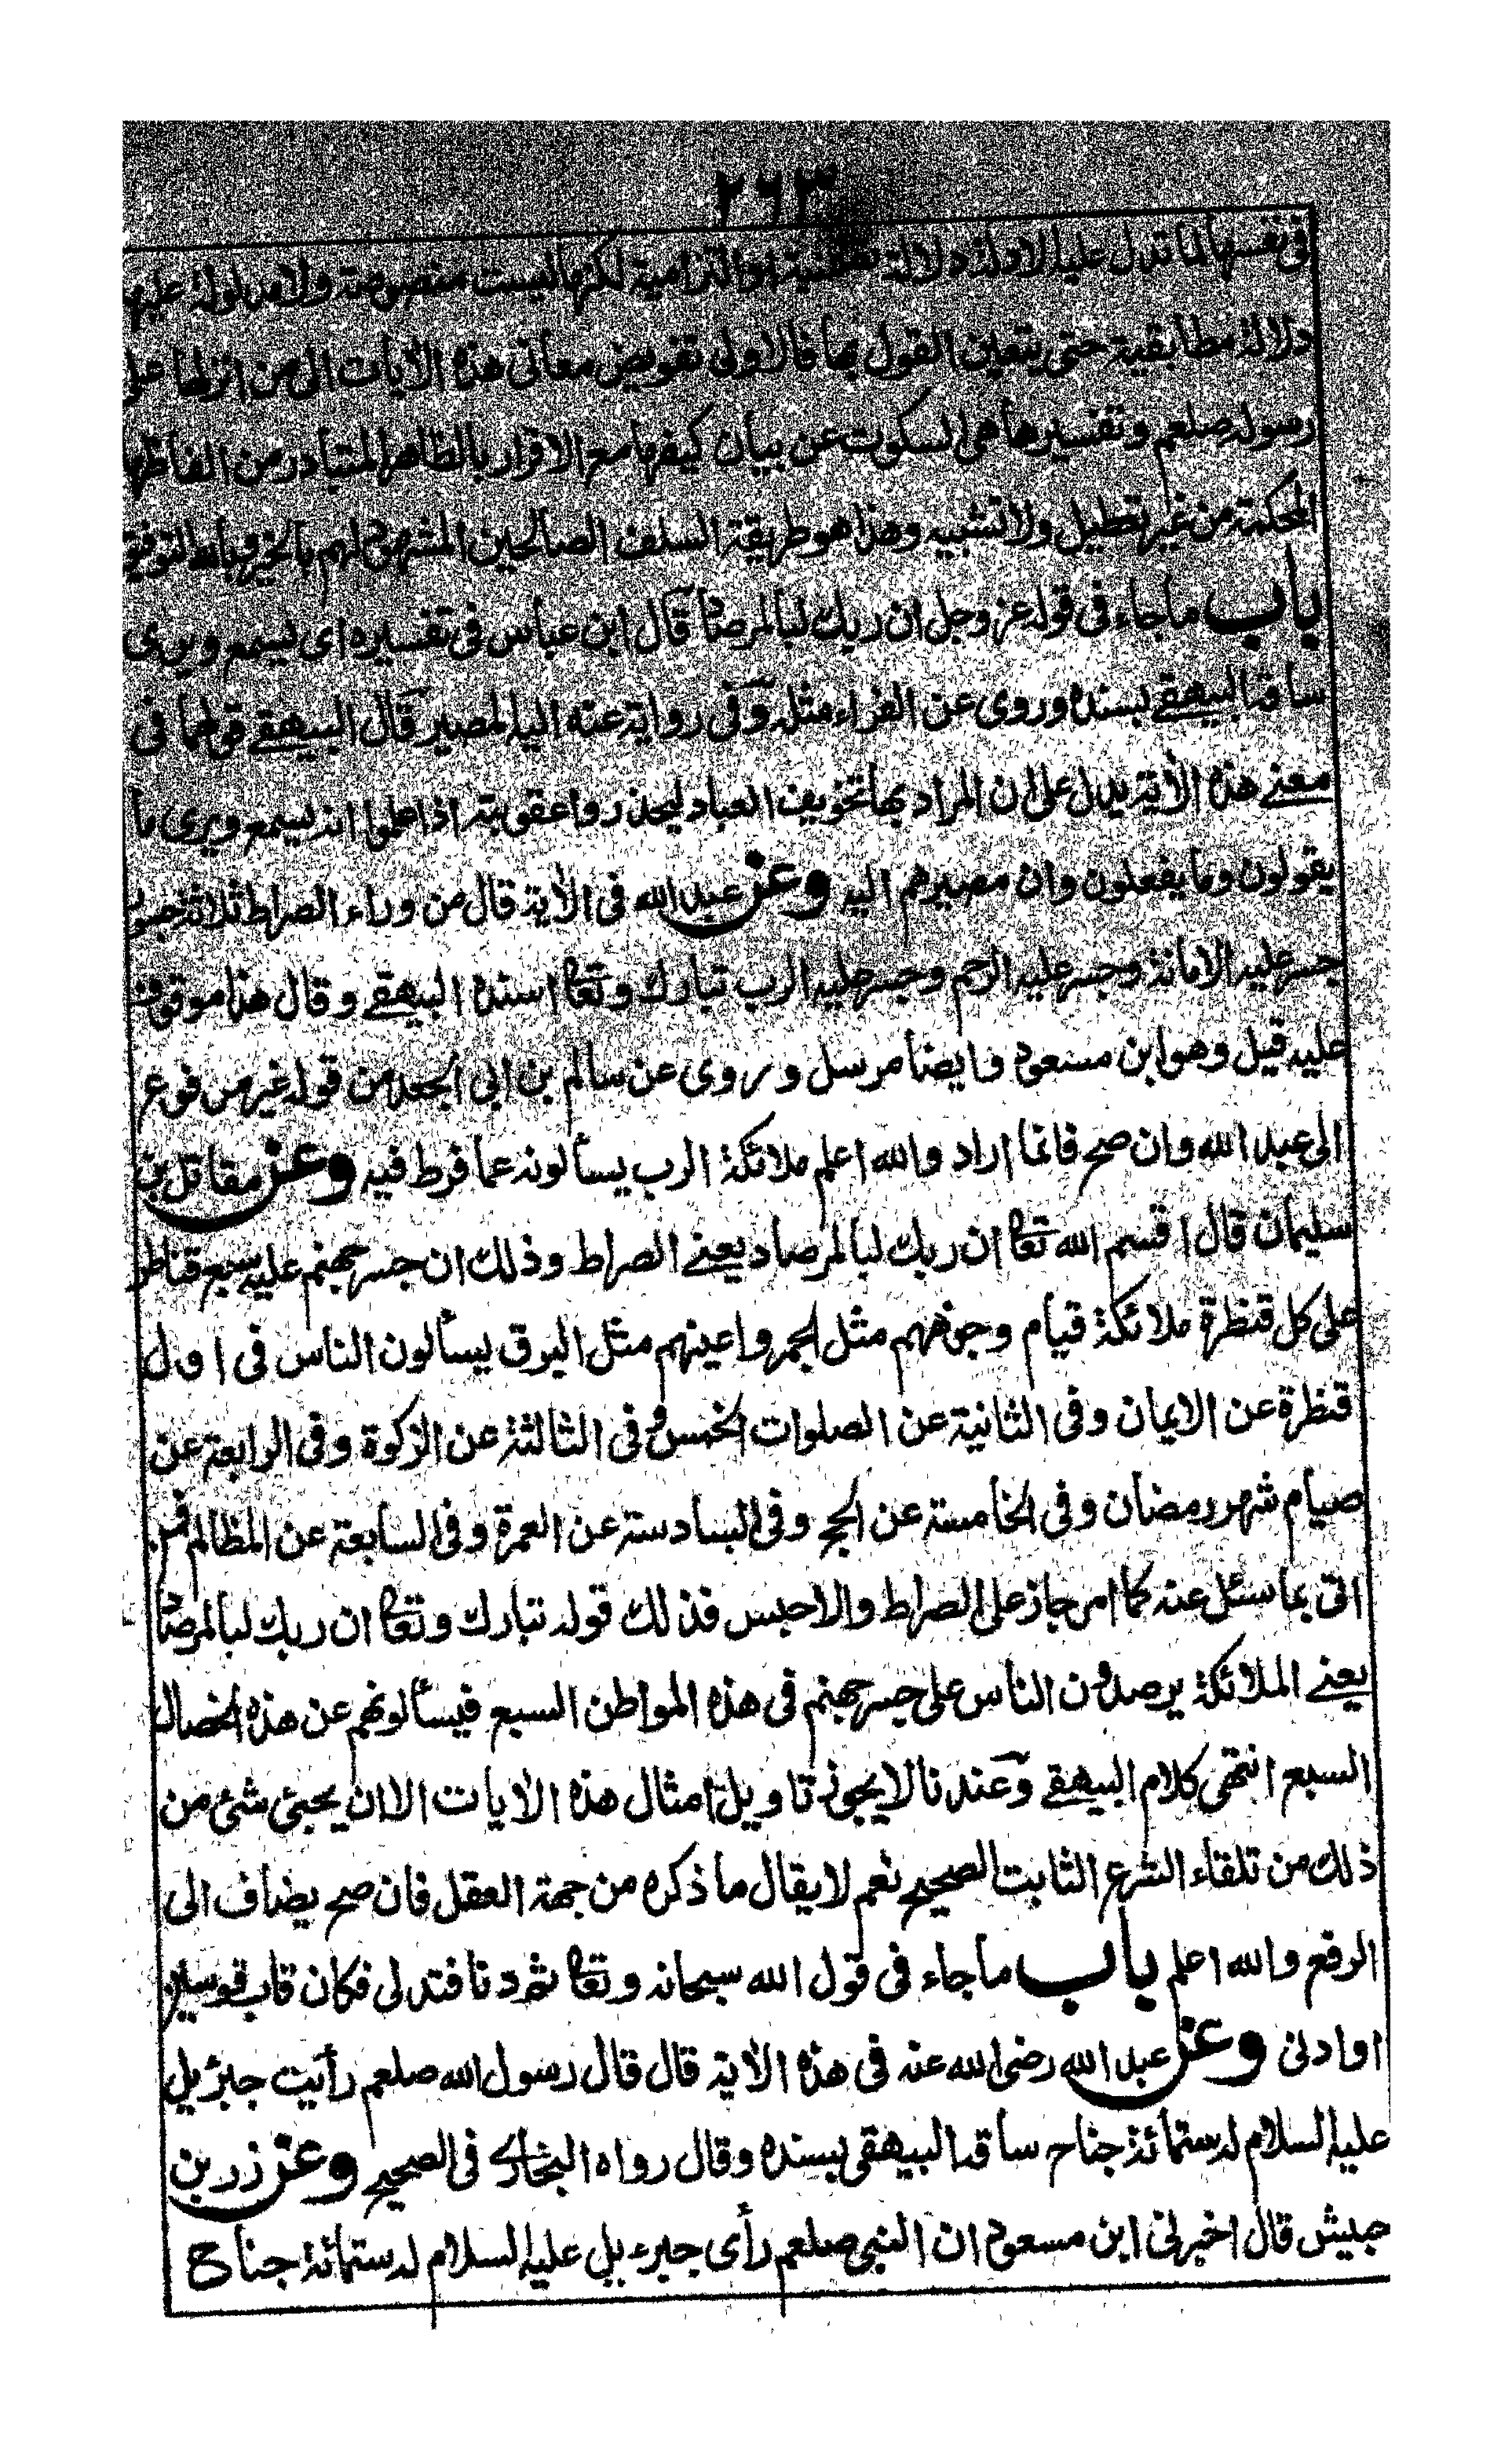 ٢٦٣
في نفسها لما تدل عليه الادلة دلالة تضمنية او التزامية لكنها ليست منصوصة ولا مدلولة عليها
دلالة مطابقية حتى يتعين القول بها فالاولى تفويض معاني هذه الآيات الى من انزلها على
رسوله صلعم وتفسيرها هي السكوت عن بيان كيفها مع الاقرار بالظاهر المتبادر من الفاظها
المحكمة من غير تعطيل ولا تشبيه وهذا هو طريقة السلف الصالحين المشهود لهم بالخير وبالله التوفيق
باب ما جاء في قوله عز وجل ان ربك لبالمرصاد قال ابن عباس في تفسيره اى يسمع ويرى
ساقه البيهقي بسنده وروى عن الفراء مثله وفي رواية عنه اليه المصير قال البيهقي قولهما في
معنى هذه الآية يدل على ان المراد بها تخويف العباد ليحذروا عقوبته اذا علموا انه يسمع ويرى ما
يقولون وما يفعلون وان مصيرهم اليه وعن عبد الله في الآية قال من وراء الصراط ثلاثة جسور
جسر عليه الامانة وجسر عليه الرحم وجسر عليه الرب تبارك وتعا اسنده البيهقي وقال هذا موقوف
عليه قيل وهو ابن مسعود وايضا مرسل وروى عن سالم بن ابي الجعد من قوله غير مرفوع
الى عبد الله وان صح فانما اراد والله اعلم ملائكة الرب يسألونه عما فرط فيه وعن مقاتل بن
سليمان قال اقسم الله تعا ان ربك لبالمرصاد يعني الصراط وذلك ان جسر جهنم عليه سبع قناطر
على كل قنظرة ملائكة قيام وجوههم مثل الجمر واعينهم مثل البرق يسألون الناس في اول
قنظرة عن الايمان وفي الثانية عن الصلوات الخمس وفي الثالثة عن الزكوة وفي الرابعة عن
صيام شهر رمضان وفي الخامسة عن الحج وفي السادسة عن العمرة وفي السابعة عن المظالم فمن
اتى بما سئل عنه كما امر جاز على الصراط والا حبس فذلك قوله تبارك وتعا ان ربك لبالمرصاد
يعني الملائكة يرصدون الناس على جسر جهنم في هذه المواطن السبع فيسألونهم عن هذه الخصال
السبع انتهى كلام البيهقي وعندنا لا يجوز تاويل امثال هذه الآيات الا ان يجيئ شئ من
ذلك من تلقاء الشرع الثابت الصحيح نعم لا يقال ما ذكره من جهة العقل فان صح يضاف الى
الرفع والله اعلم باب ما جاء في قول الله سبحانه وتعا ثم دنا فتدلى فكان قاب قوسين
او ادنى وعن عبد الله رضي الله عنه في هذه الآية قال قال رسول الله صلعم رأيت جبرئيل
عليه السلام له ستمائة جناح ساقه البيهقي بسنده وقال رواه البخاري في الصحيح وعن زر بن
حبيش قال اخبرني ابن مسعود ان النبي صلعم رأى جبرءيل عليه السلام له ستمائة جناح